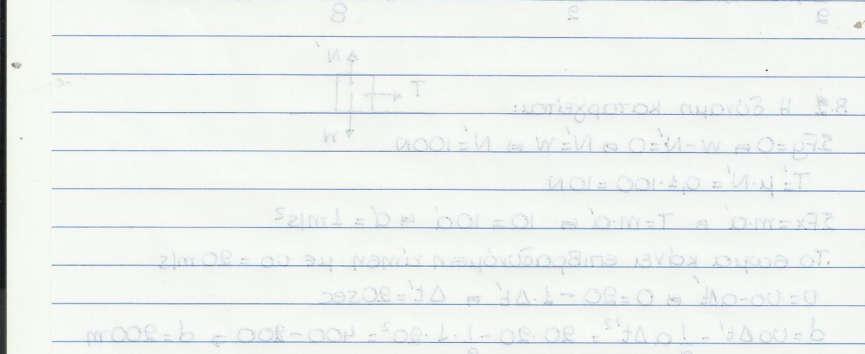 2 2 8
N'
T
w
Β.2 Η δύναμη καταργείται:
ΣFy=0 ⇒ w-N'=0 ⇒ N'=w ⇒ N'=100N
T'=μ·N'=0,1·100=10N
ΣFx=m·α' ⇒ T=m·α' ⇒ 10=10α' ⇒ α'=1m/s²
Το σώμα κάνει επιβραδυνόμενη κίνηση με υ0=20m/s
υ=υ0-αΔt' ⇒ 0=20-1·Δt' ⇒ Δt'=20sec
d=υ0Δt'-½αΔt'²=20·20-½·1·20²=400-200 ⇒ d=200m